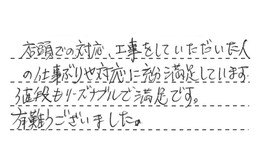 店頭での対応、工事をしていただいた人
の仕事ぶりや対応に充分満足しています
値段もリーズナブルで満足です。
有難うございました。